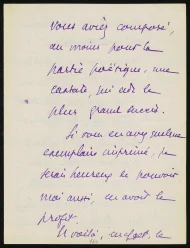 vous aviez composé,
au moins pour la
partie poétique, une
cantate, qui eut le
plus grand succès.
Si vous en avez quelque
exemplaire imprimé, je
serais heureux de pouvoir
moi aussi, en avoir le
profit.
Et voilà, le